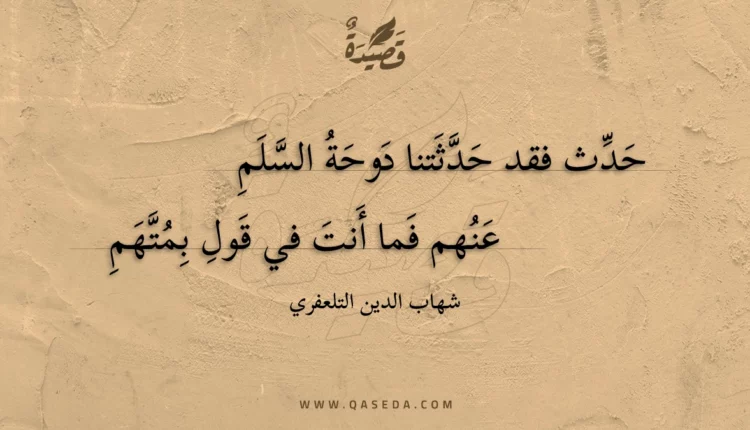 قَصِيدَةٌ
حَدِّث فقد حَدَّثَتنا دَوحَةُ السَّلَمِ
عَنُهم فَما أَنتَ في قَولِ بِمُتَّهَمِ
شهاب الدين التلعفري
WWW.QASEDA.COM